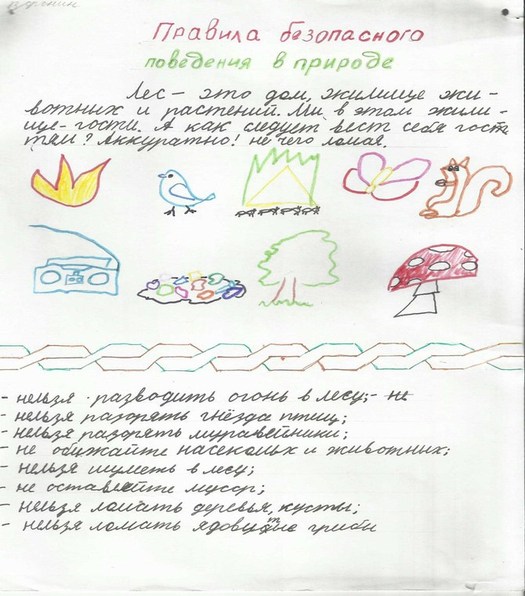 Правила безопасного
поведения в природе
Лес – это дом, жилище жи-
вотных и растений. Мы в этом жили-
ще – гости. А как следует вест себя гостя
тям? Аккуратно! не чего ломая.
- нельзя разводить огонь в лесу; - не
- нельзя разорять гнёзда птиц;
- нельзя разорять муравейники;
- не обижайте насекомых и животных;
- нельзя шуметь в лесу;
- не оставляйте мусор;
- нельзя ломать деревья, кусты;
- нельзя ломать ядовитые грибы